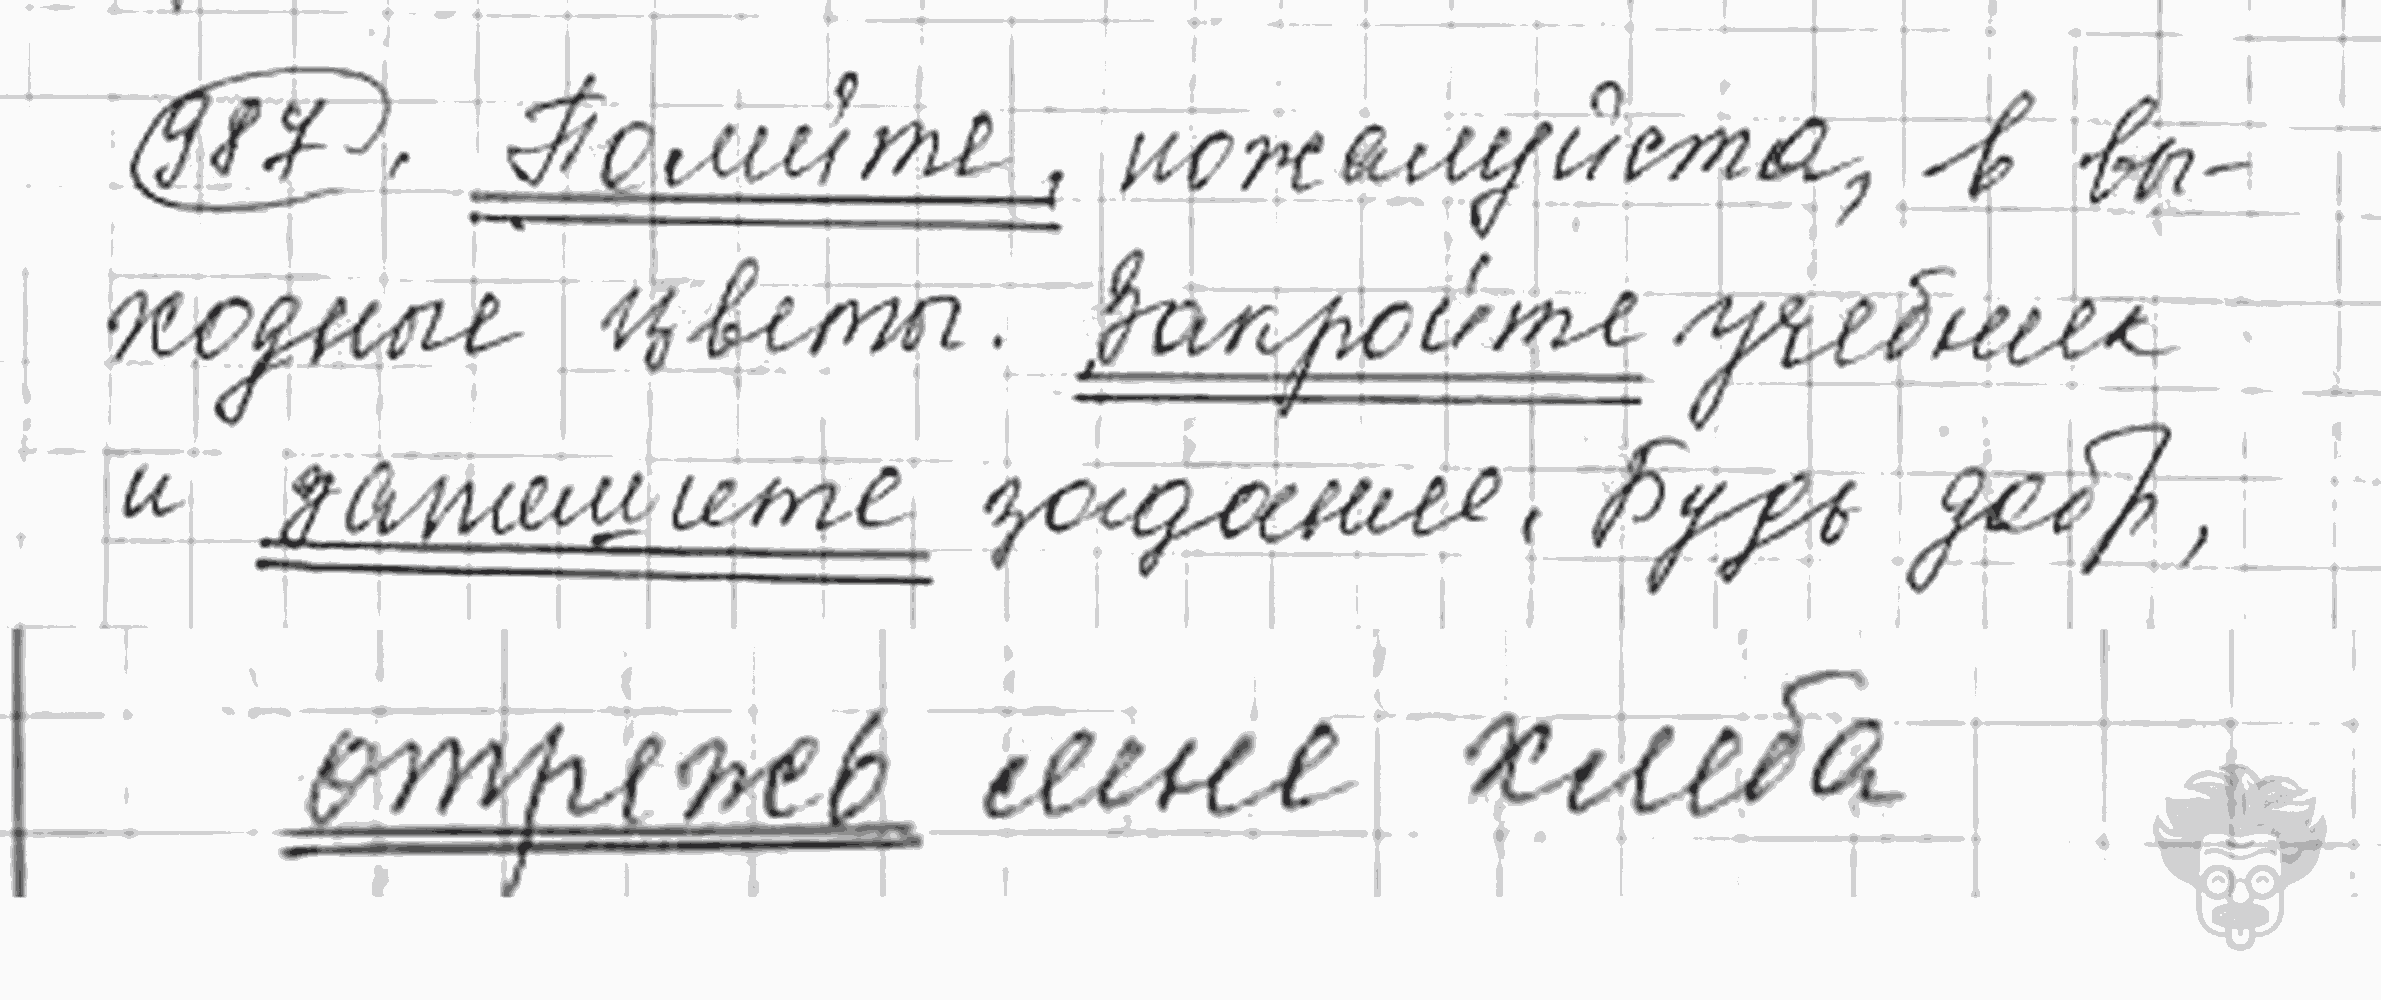 987. Полейте, пожалуйста, в вы-
ходные цветы. Закройте учебник
и запишите задание. Будь добр,
отрежь мне хлеба